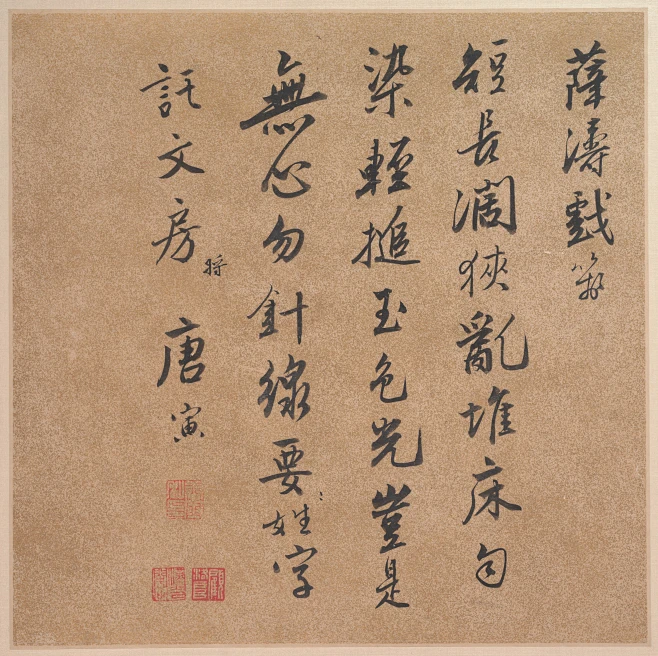 薛濤戲箋
短長濶狹亂堆床匀
染輕搥玉色光豈是
無心勿針線要姓字
託文房將 唐寅